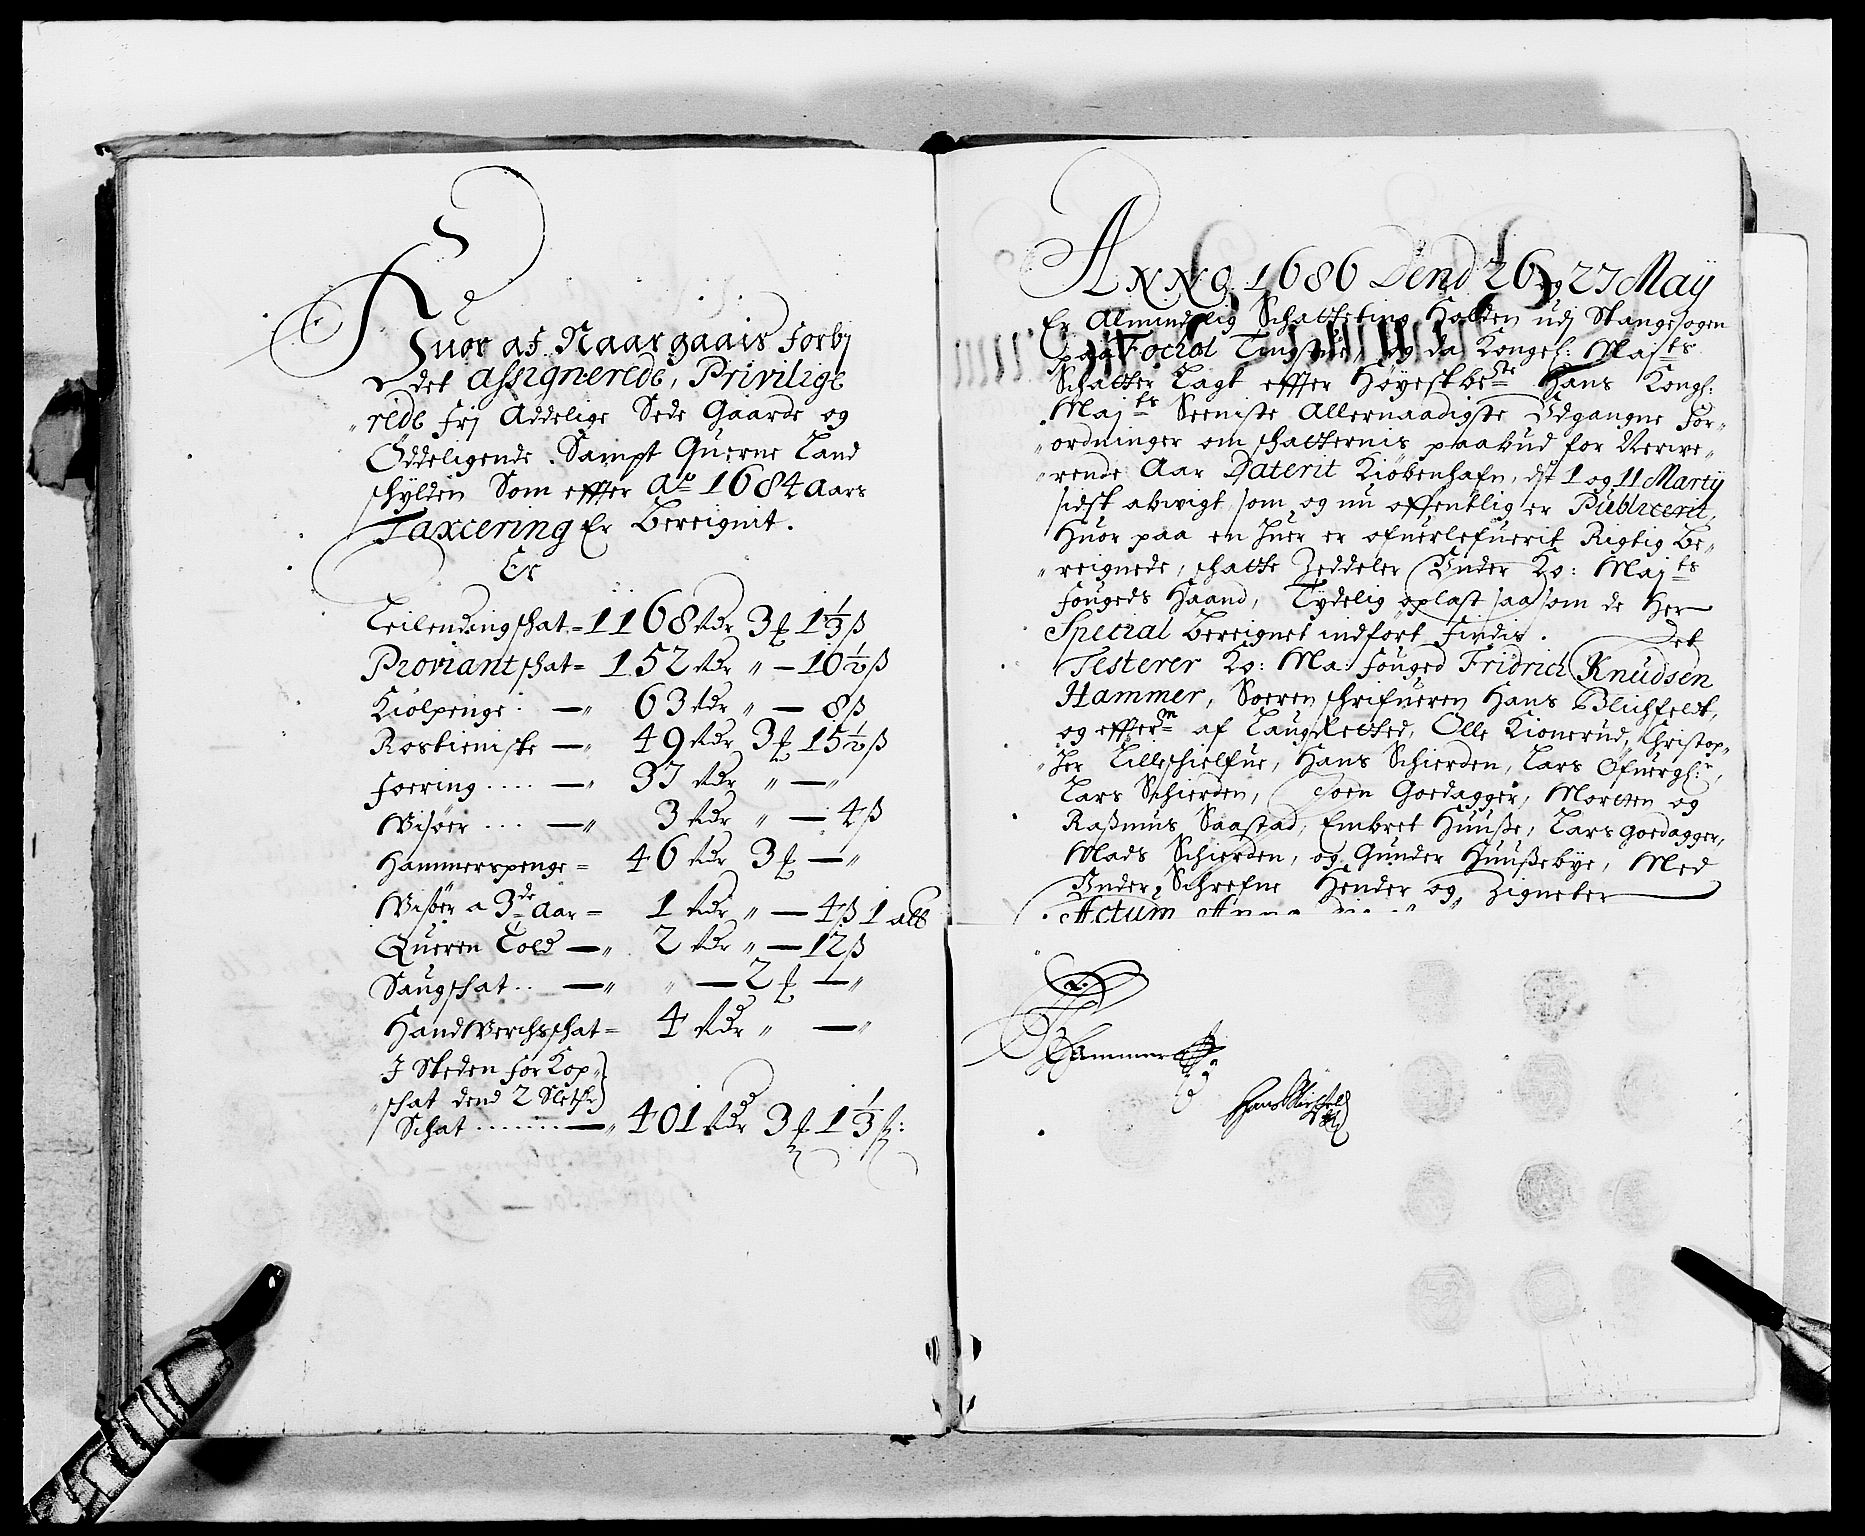 Huor af Naar gaais forbj
det assignerede, Privilige
rede frj Addelige Sede Gaarde og
Øddeligende. Sampt Querne Land
schylden Som effter Ao 1684 Aars
Taxcering Er Bereignit.
Er
Leilendingschat = 1168 Rdr 3 ƒ 1⅓ ß
Proviantschat = 152 Rdr " — 10½ ß
Kiølpenge — " 63 Rdr " — 8 ß
Rostieniste — " 49 Rdr 3 ƒ 15½ ß
Foering .... — " 37 Rdr " — "
Wisøer ... — " 3 Rdr " — 4 ß
Hammerspenge = 46 Rdr 3 ƒ — "
Wisøer a 3de Aar = 1 Rdr " — 4 ß 1 alb
Queren Told — " 2 Rdr " — 12 ß
Saugschat .. — " " — 2 ƒ — "
HandWerchsschat = 4 Rdr " — "
J Steden for Kop„
schat dend 2 Sletdr
Schat ........ — " 401 Rdr 3 ƒ 1⅓ ß:
Anno 1686 Dend 26 og 27 Maÿ
Er Almindelig Schatteting Holden udj Stangesogen
paa Tingstue, og da Kongel: Maj:ts
Schatter Lagt effter Høyestbe:te Hans Kongl:
Maj:ts Seeniste Allernaadigste Udgangne For„
„ordninger om schatternis paabud for Nerwe„
„rende Aar Daterit Kiøbenhafn, dend 1 og 11 Martÿ
sidst abwigt, som og nu offentlig er Publicerit,
Huor paa en huer er ofuerlefuerit Rigtig Be„
„reignede, schatte Zeddeler Under Ko: Maj:ts
fougeds Haand, Tydelig oplast saasom de Her
Special Bereignet indført findis. Det
Testerer Ko: Ma: fouged Fridrich Knudsen
Hammer, Soeren schrifueren Hans Blichfeldt,
og effter:m af Laug Retted, Olle Kionerud, Christop„
„her Lilleschielfue, Hans Schierden, Lars Ofuergl:,
Lars Schierden, Joen Goedagger, Morten og
Raßmus Saastad, Embret Huuße, Lars Goedagger,
Mads Schierden, og Gunder Huußebye, Med
Under Schrefne Hender og Zigneter
Actum Anno
Hammer
Hans Blichfeldt